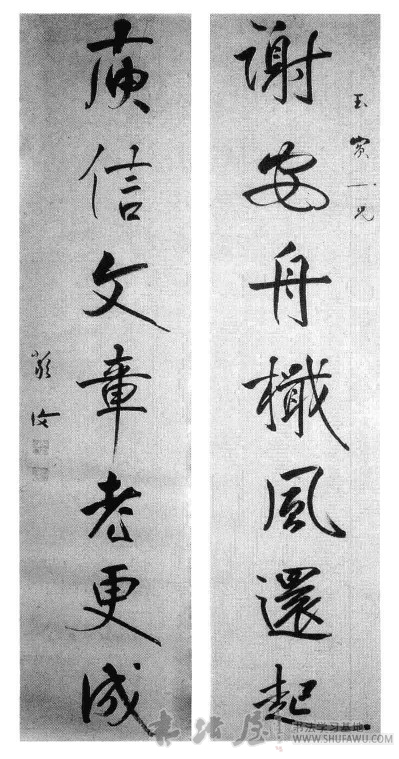 玉賓一兄
謝安舟檝風還起
庾信文章老更成
书法屋
书法学习基地
WWW.SHUFAWU.COM